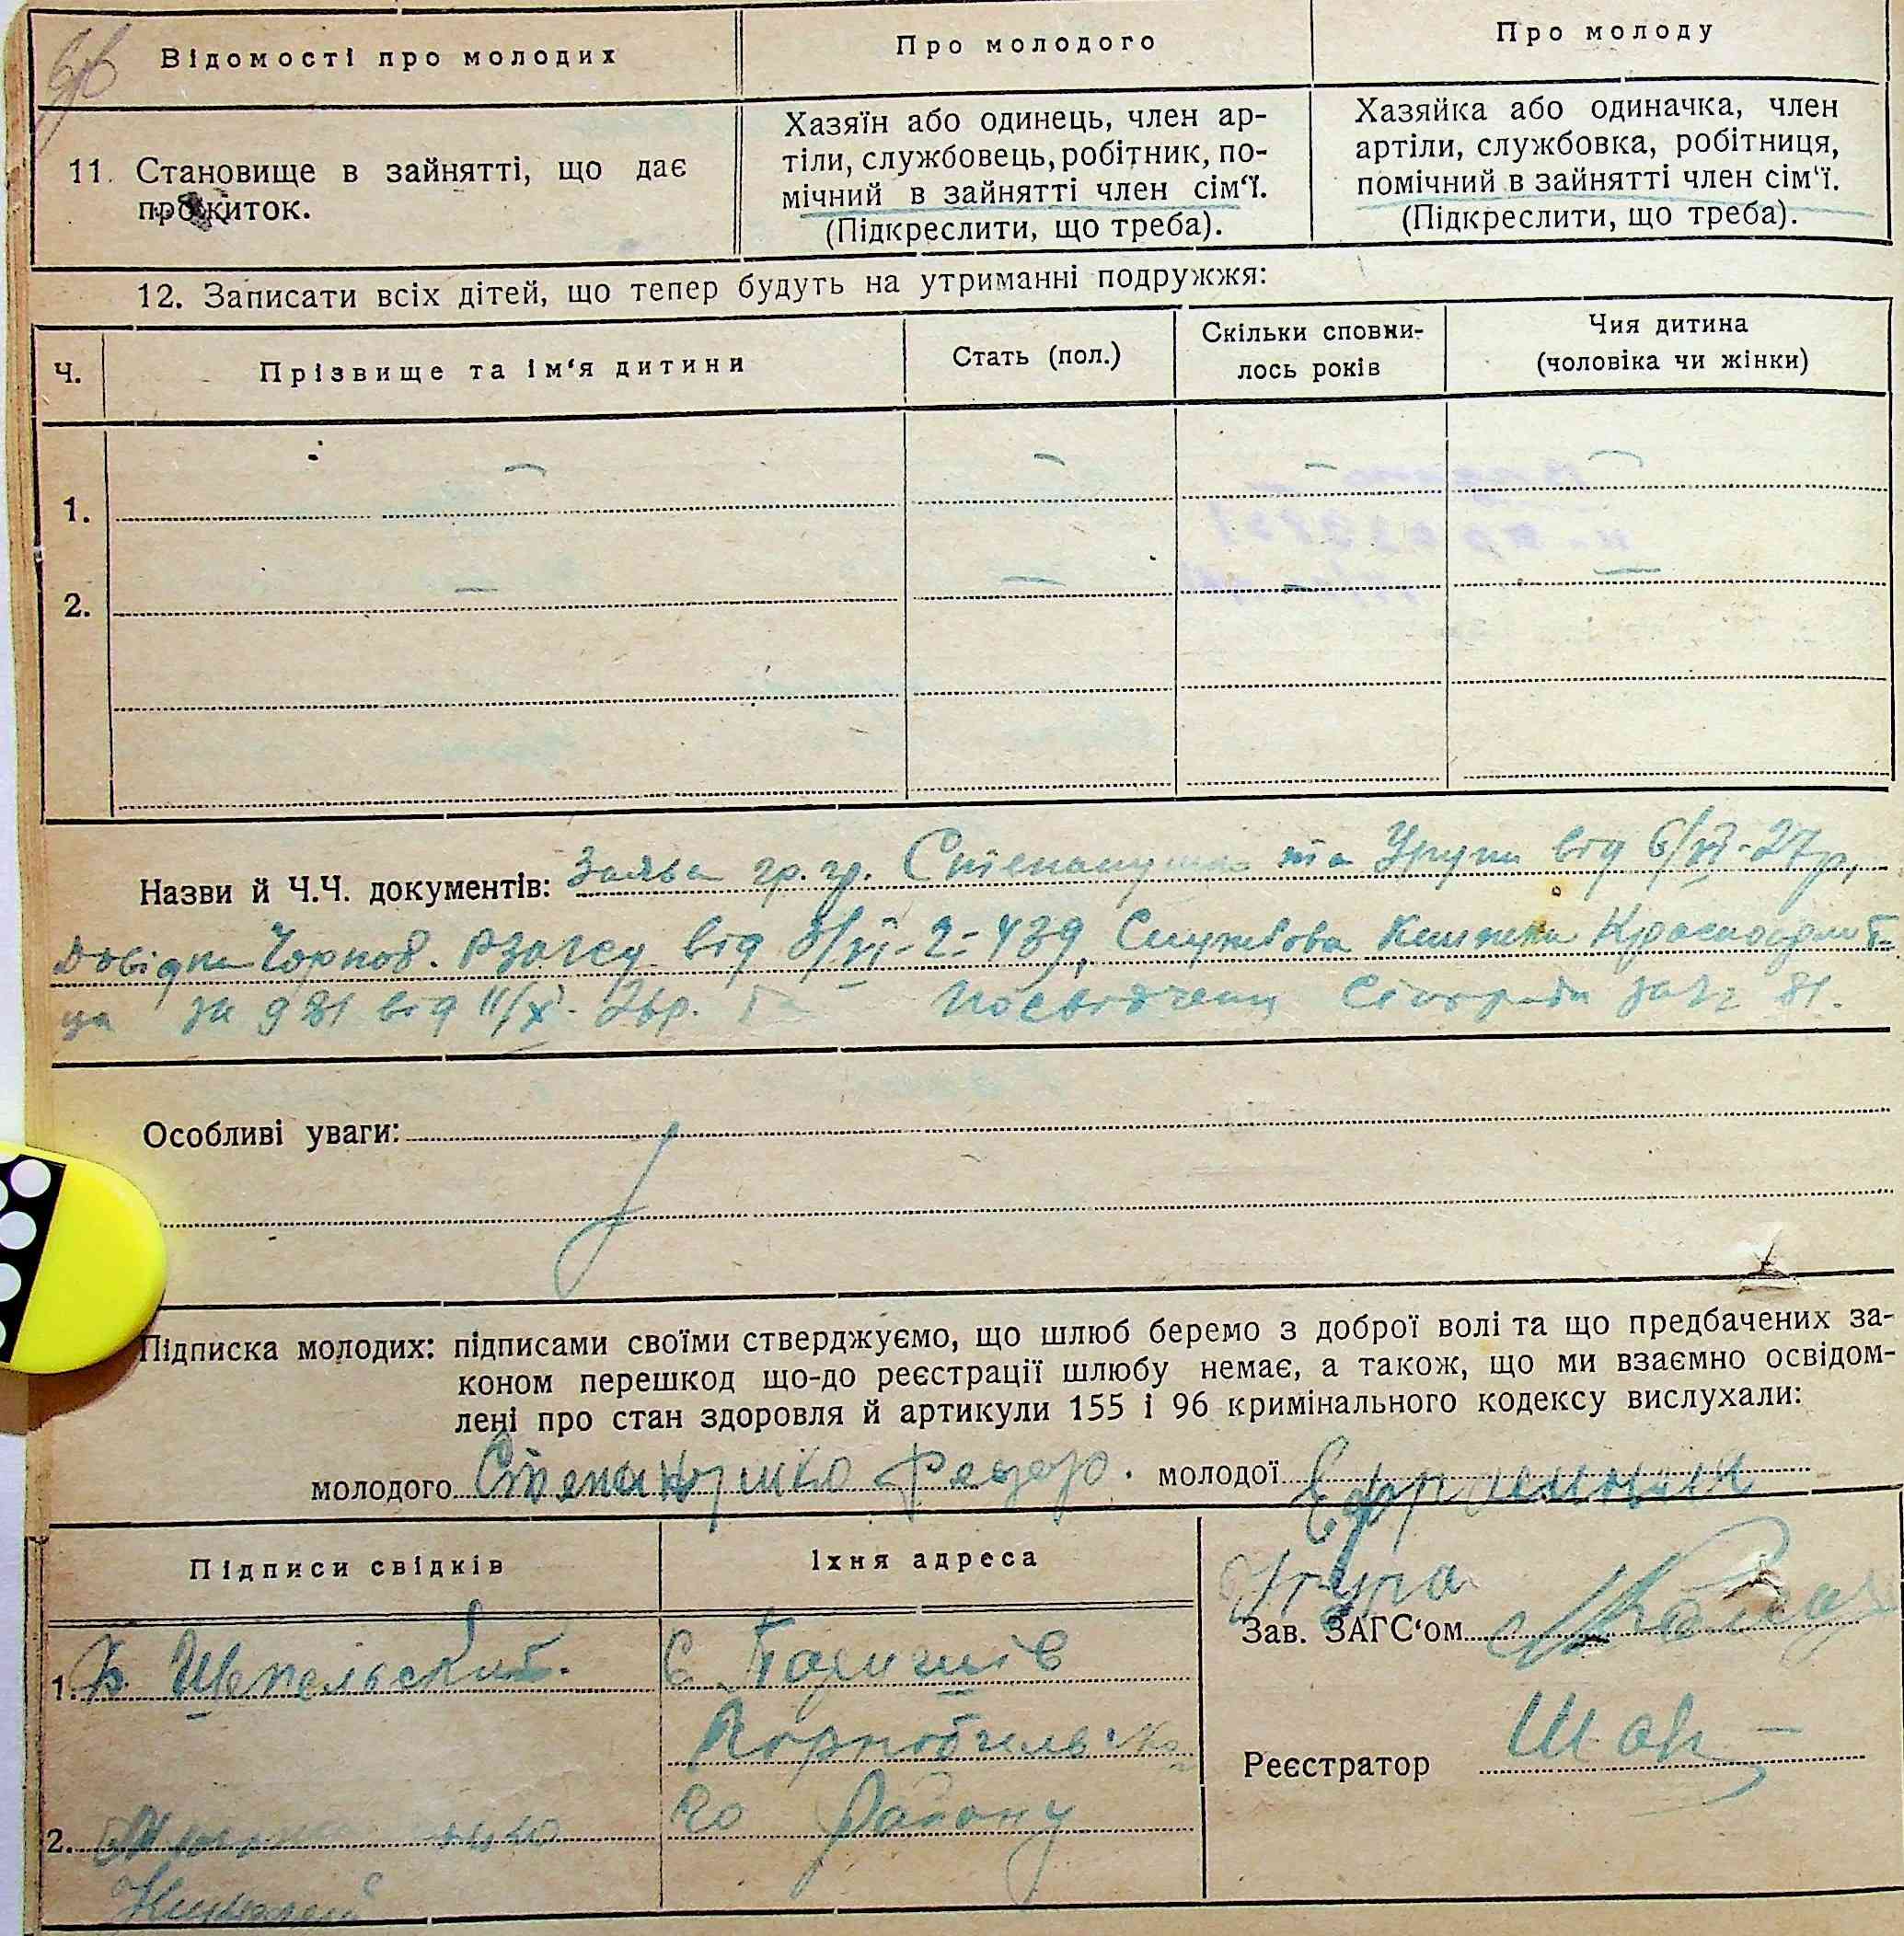 Відомості про молодих
Про молодого
Про молоду
11. Становище в зайнятті, що дає
прожиток.
Хазяїн або одинець, член ар-
тіли, службовець, робітник, по-
мічний в зайнятті член сім'ї.
(Підкреслити, що треба).
Хазяйка або одиначка, член
артіли, службовка, робітниця,
помічний в зайнятті член сім'ї.
(Підкреслити, що треба).
12. Записати всіх дітей, що тепер будуть на утриманні подружжя:
Ч.
Прізвище та ім'я дитини
Стать (пол.)
Скільки сповни-
лось років
Чия дитина
(чоловіка чи жінки)
1. — — — —
2. — — — —
Назви й Ч.Ч. документів: Заява гр. гр. та від 6/VI-27р,
Довідка Чорноб. РЗАГСу від 8/VI-2-439, Службова Книжка Красноармей-
ця за 981 від 11/X-26р. Та Посвідчення Сільради за № 81.
Особливі уваги:
Підписка молодих: підписами своїми стверджуємо, що шлюб беремо з доброї волі та що предбачених за-
коном перешкод що-до реєстрації шлюбу немає, а також, що ми взаємно освідом-
лені про стан здоровля й артикули 155 і 96 кримінального кодексу вислухали:
молодого Федор. молодої
Підписи свідків
Їхня адреса
Зав. ЗАГС'ом
1. Щепельский.
С.
Чорнобильсько-
го Району
Реєстратор
2.